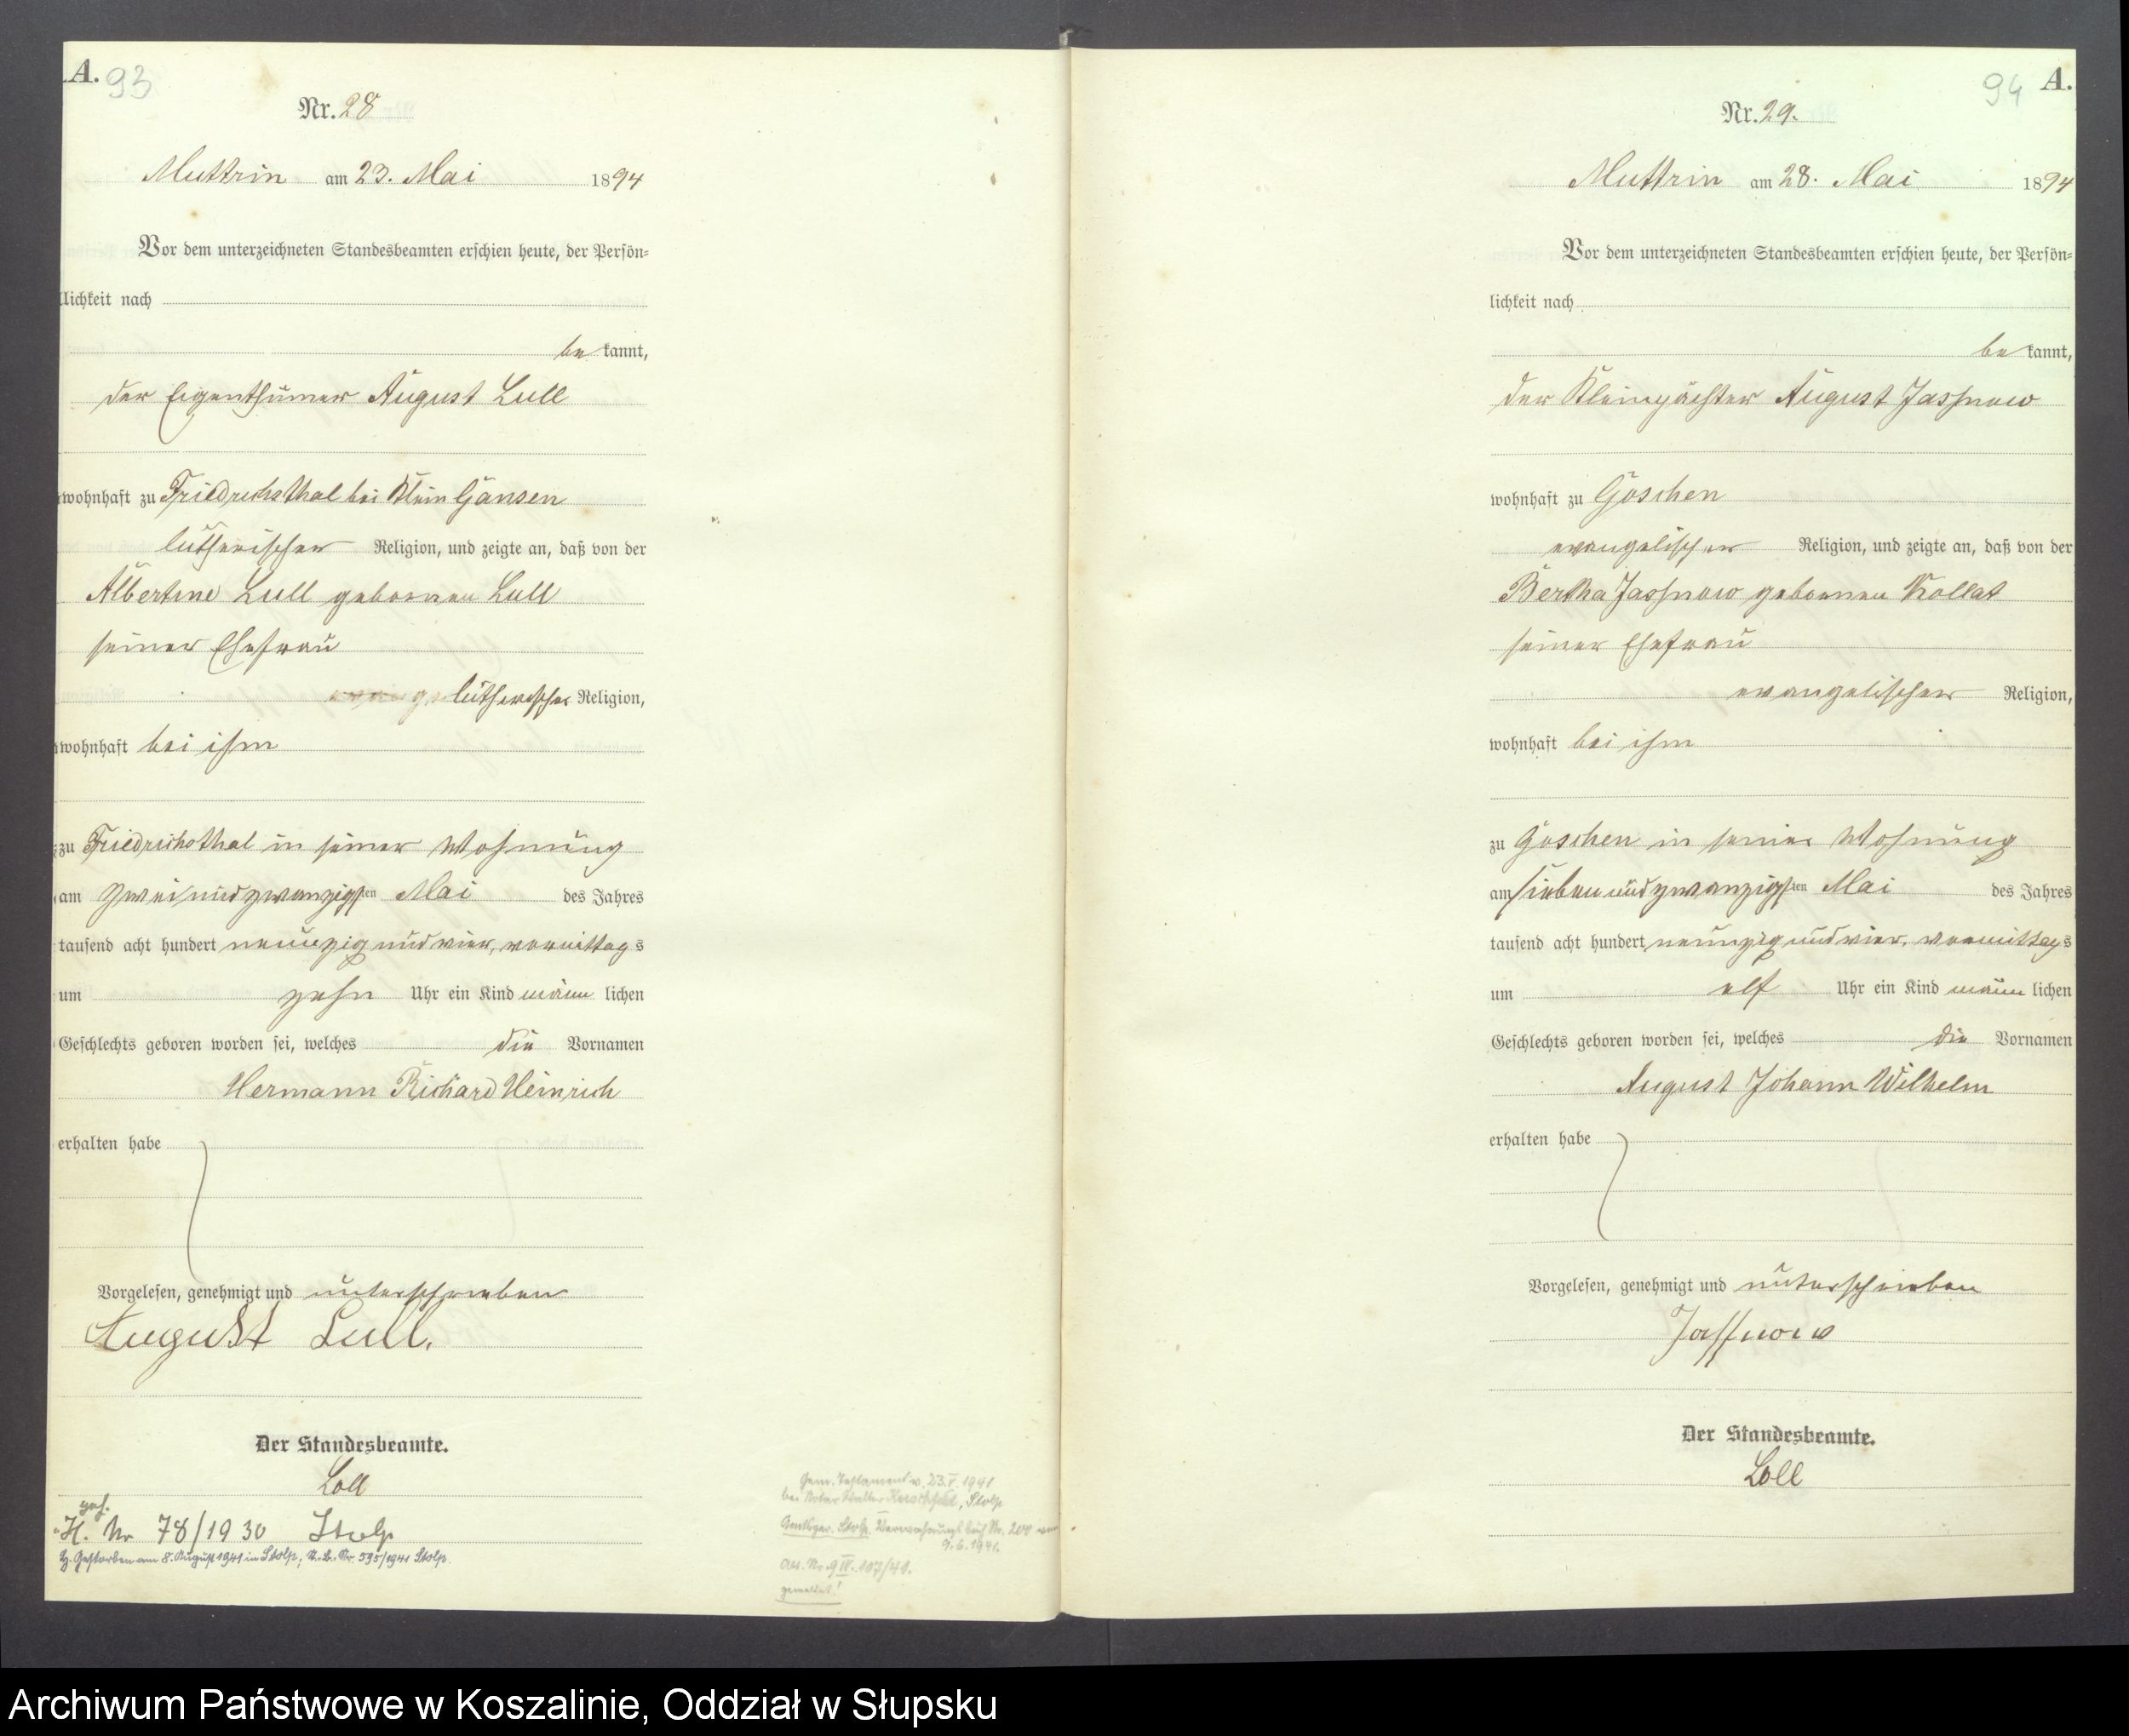 A. 93
Nr. 28
Muttrin am 23. Mai 1894
Vor dem unterzeichneten Standesbeamten erschien heute, der Persön-
lichkeit nach
be kannt,
der Eigenthümer August Lull
wohnhaft zu Friedrichsthal bei Klein Gansen
lutherischer Religion, und zeigte an, daß von der
Albertine Lull geborenen Lull
seiner Ehefrau
lutherischer Religion,
wohnhaft bei ihm
zu Friedrichsthal in seiner Wohnung
am zweiundzwanzigsten Mai des Jahres
tausend acht hundert neunzig und vier, vormittags
um zehn Uhr ein Kind männ lichen
Geschlechts geboren worden sei, welches die Vornamen
Hermann Richard Heinrich
erhalten habe
Vorgelesen, genehmigt und unterschrieben
August Lull.
Der Standesbeamte.
Loll
geh.
H. Nr 78/1930 Stolp
Gestorben am 8. August 1941 in Stolp, Nr. 595/1941 Stolp.
Gem. Testament v. 23.V.1941
bei Notar Walter, Stolp
Amtsger. Stolp. Verwahrungsbuch Nr. 200
9.6.1941.
107/41.
gemeldet!
94 A.
Nr. 29.
Muttrin am 28. Mai 1894
Vor dem unterzeichneten Standesbeamten erschien heute, der Persön-
lichkeit nach
be kannt,
der Kleinpächter August Jassnow
wohnhaft zu Goschen
evangelischer Religion, und zeigte an, daß von der
Bertha Jassnow geborenen Kollat
seiner Ehefrau
evangelischer Religion,
wohnhaft bei ihm
zu Goschen in seiner Wohnung
am siebenundzwanzigsten Mai des Jahres
tausend acht hundert neunzig und vier, vormittags
um elf Uhr ein Kind männ lichen
Geschlechts geboren worden sei, welches die Vornamen
August Johann Wilhelm
erhalten habe
Vorgelesen, genehmigt und unterschrieben
Jassnow
Der Standesbeamte.
Loll
Archiwum Państwowe w Koszalinie, Oddział w Słupsku